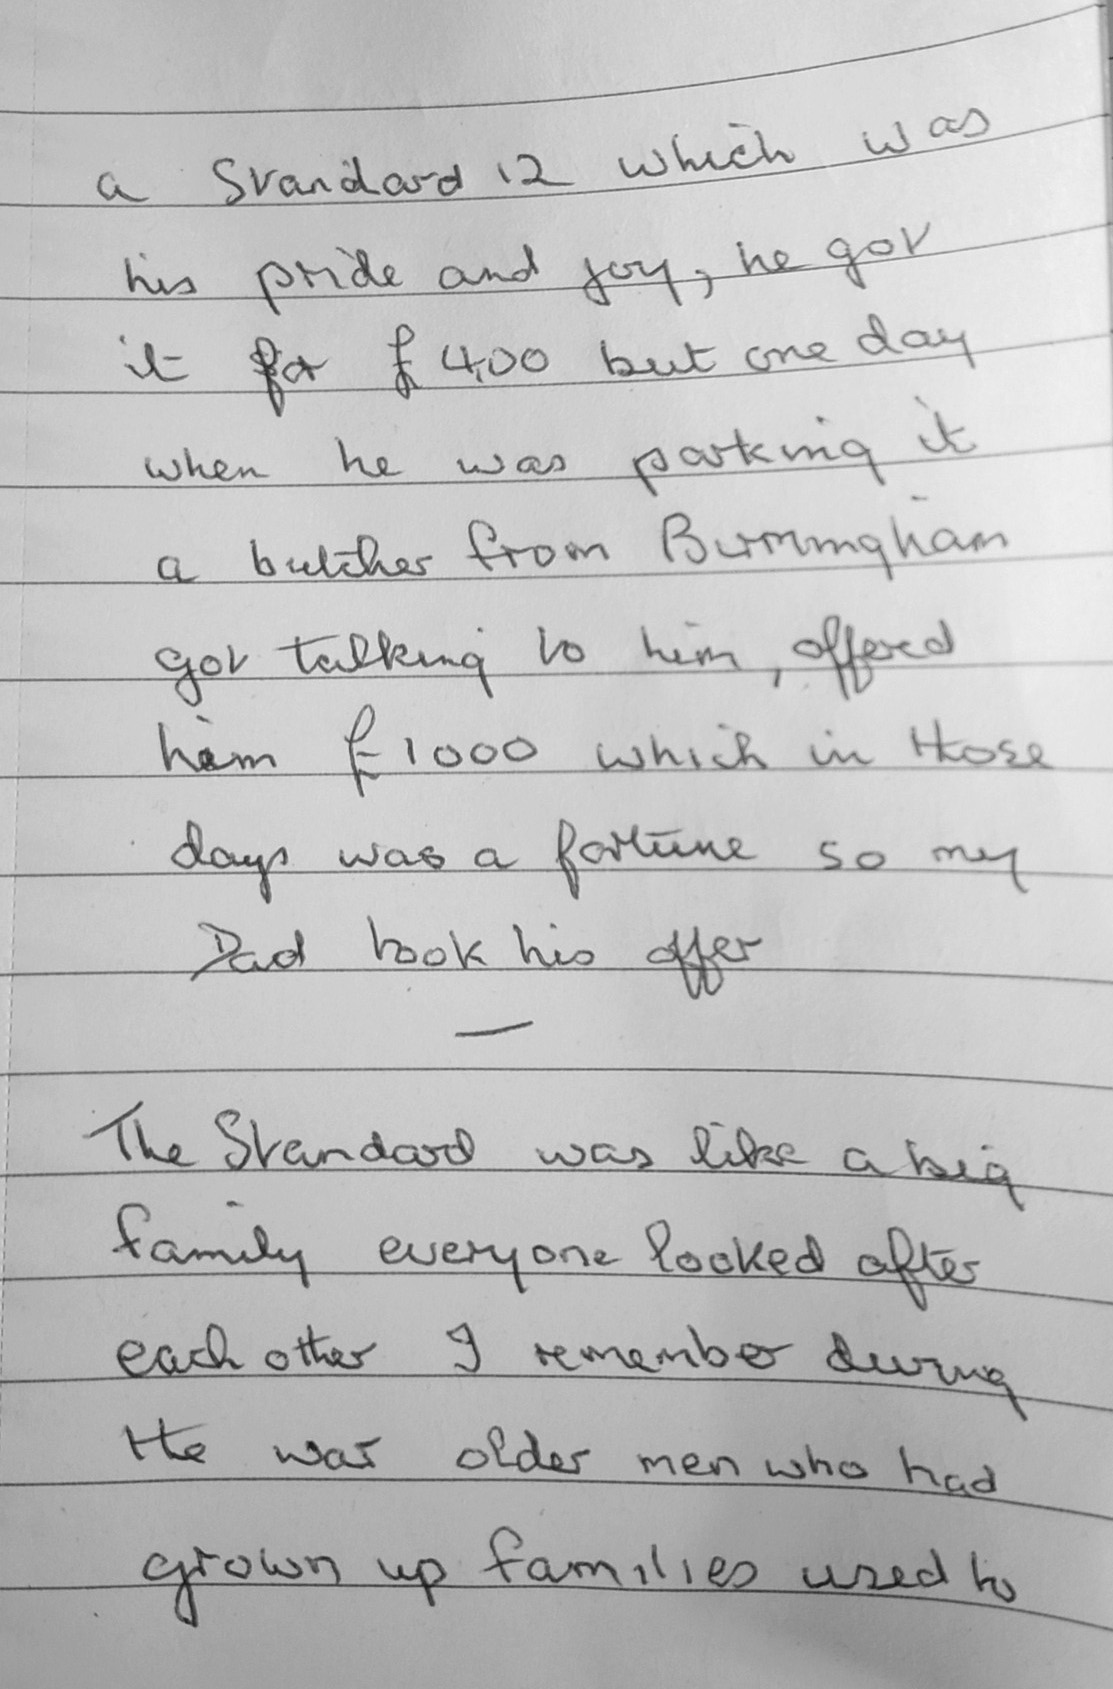 a Standard 12 which was
his pride and joy, he got
it for £400 but one day
when he was parking it
a butcher from Birmingham
got talking to him, offered
him £1000 which in those
days was a fortune so my
Dad took his offer
—
The Standard was like a big
family everyone looked after
each other I remember during
the war older men who had
grown up families used to